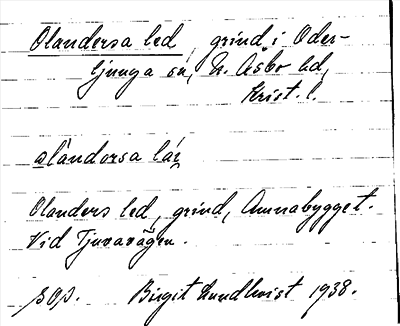 Olanders a led, grind i Oder-
ljunga sn, N. Åsbo hd,
Krist. l.
olándorsa lár
Olanders led, grind, Annabygget.
Vid Tjuvavägen.
sop. Birgit Lundkvist 1938.